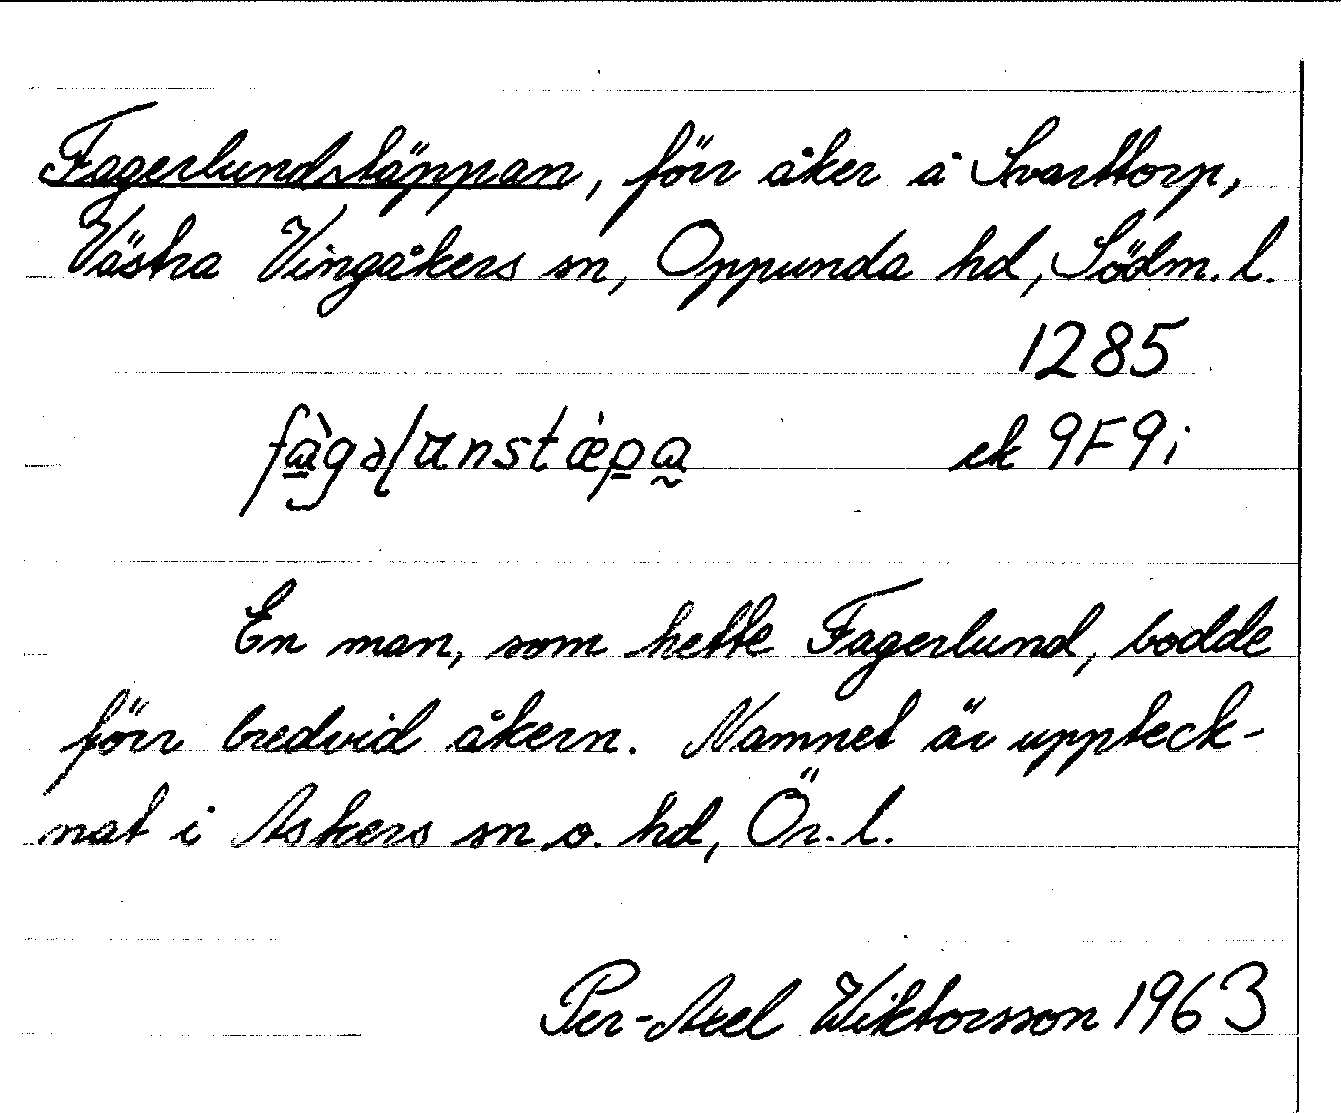 Fagerlundstäppan, förr åker å Svarttorp,
Västra Vingåkers sn, Oppunda hd, Södm. l.
1285
fàgəlunstǽpa ek 9F9i
En man, som hette Fagerlund, bodde
förr bredvid åkern. Namnet är uppteck-
nat i Askers sn o. hd, Ör. l.
Per-Axel Wiktorsson 1963